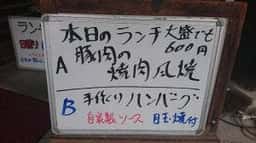 本日のランチ 大盛でも
600円
A 豚肉の
焼肉風焼
B 手作りハンバーグ
自家製ソース 目玉焼付
ラン